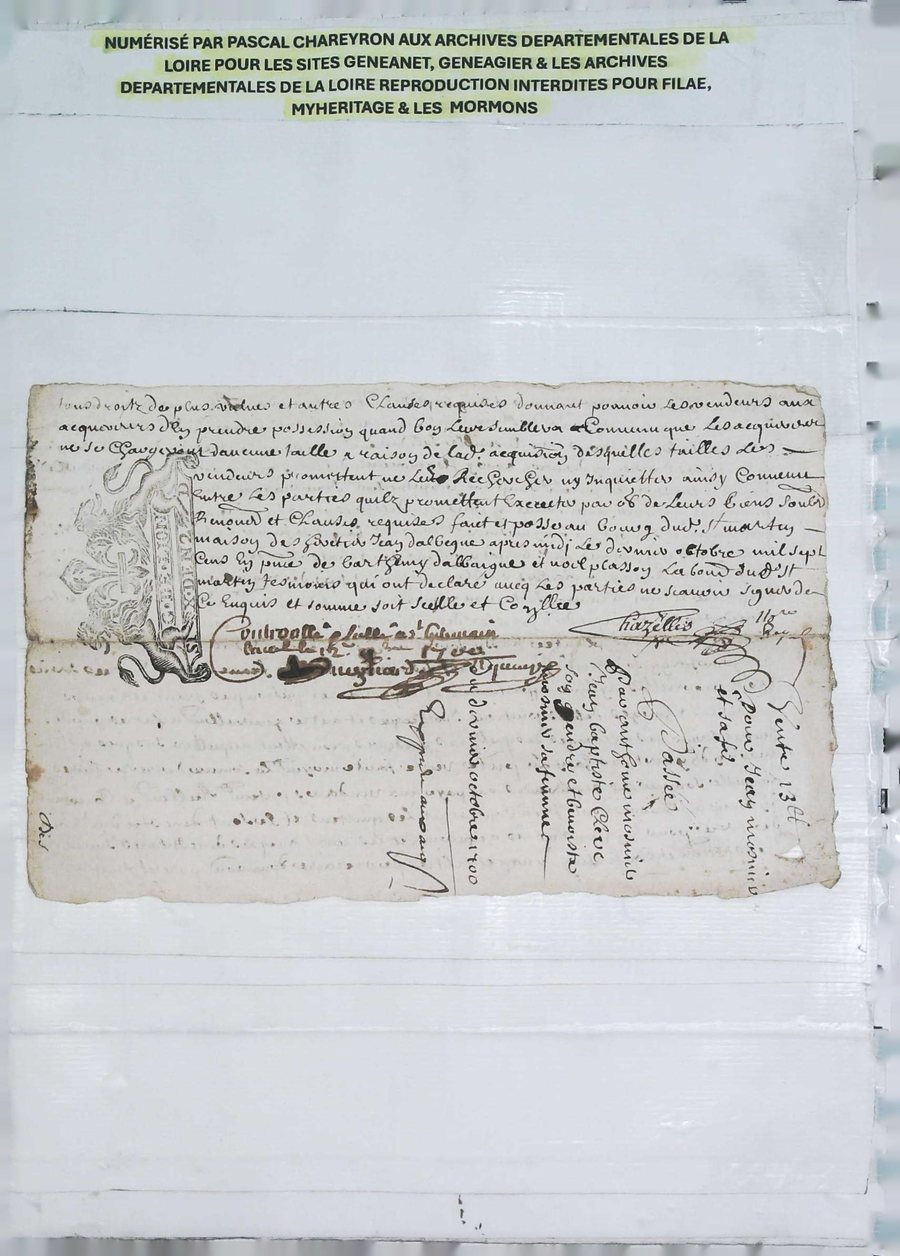 NUMÉRISÉ PAR PASCAL CHAREYRON AUX ARCHIVES DEPARTEMENTALES DE LA
LOIRE POUR LES SITES GENEANET, GENEAGIER & LES ARCHIVES
DEPARTEMENTALES DE LA LOIRE REPRODUCTION INTERDITES POUR FILAE,
MYHERITAGE & LES MORMONS
tous droitz de plus values et autres Clauses requises donnant pouvoir Les vendeurs aux
acquereurs d'en prendre possession quand bon Leur semblera Convenu que Les acquereur
ne se Chargeront d'aucune taille a raison de lad. acquision desquelles tailles Les
vendeurs promettent ne Les Rechercher ny Inquietter ainsy Convenu
Entre Les parties quilz promettent par ob de Leurs biens soub
Renonon et Clauses requises faict et passe au bourg dud. st martin
maison des Jean dalbegue apres midj Le dernier octobre mil sept
Cens En pnce de barthemy dalbaigue et noel plasson Lab dud st
martin tesmoins qui ont declaré avecq Les parties ne scavoir signer de
Ce Enquis et somme soit scellé et Conllé
Chazelles
Controllé a st Germain
Laval le 12e 9bre 1700
GEN
LION
Vente 13
Pour Jean mosnier
et sa fe
Passée
Par anthoine mosnier
Jean baptiste Clerc
son gendre et benoiste
mosnier sa femme
du dernier octobre 1700